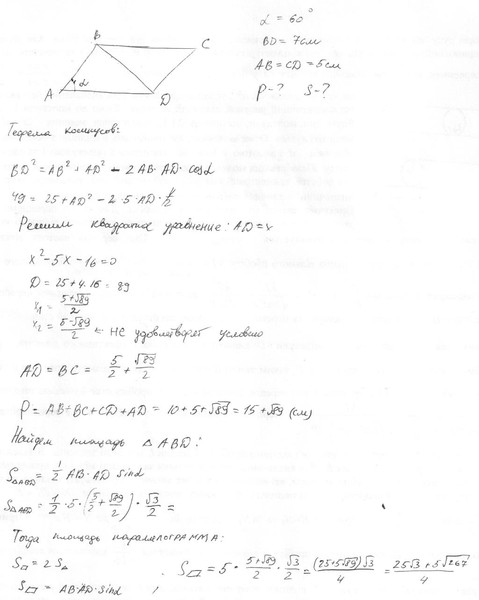 α = 60°
BD = 7см
AB = CD = 5см
P-? S-?
B
C
A
α
D
Теорема косинусов:
BD² = AB² + AD² - 2AB·AD·cosα
49 = 25 + AD² - 2·5·AD·1/2
Решим квадратное уравнение: AD = x
x² - 5x - 16 = 0
D = 25 + 4·16 = 89
x₁ = (5+√89)/2
x₂ = (5-√89)/2 ← не удовлетворят условию
AD = BC = 5/2 + √89/2
P = AB + BC + CD + AD = 10 + 5 + √89 = 15 + √89 (см)
Найдем площадь △ABD:
S△ABD = 1/2 AB·AD sinα
S△ABD = 1/2 · 5 · (5/2 + √89/2) · √3/2 =
Тогда площадь параллелограмма:
S▱ = 2S△
S▱ = AB·AD·sinα
S▱ = 5 · (5+√89)/2 · √3/2 = (25+5√89)√3/4 = (25√3 + 5√267)/4